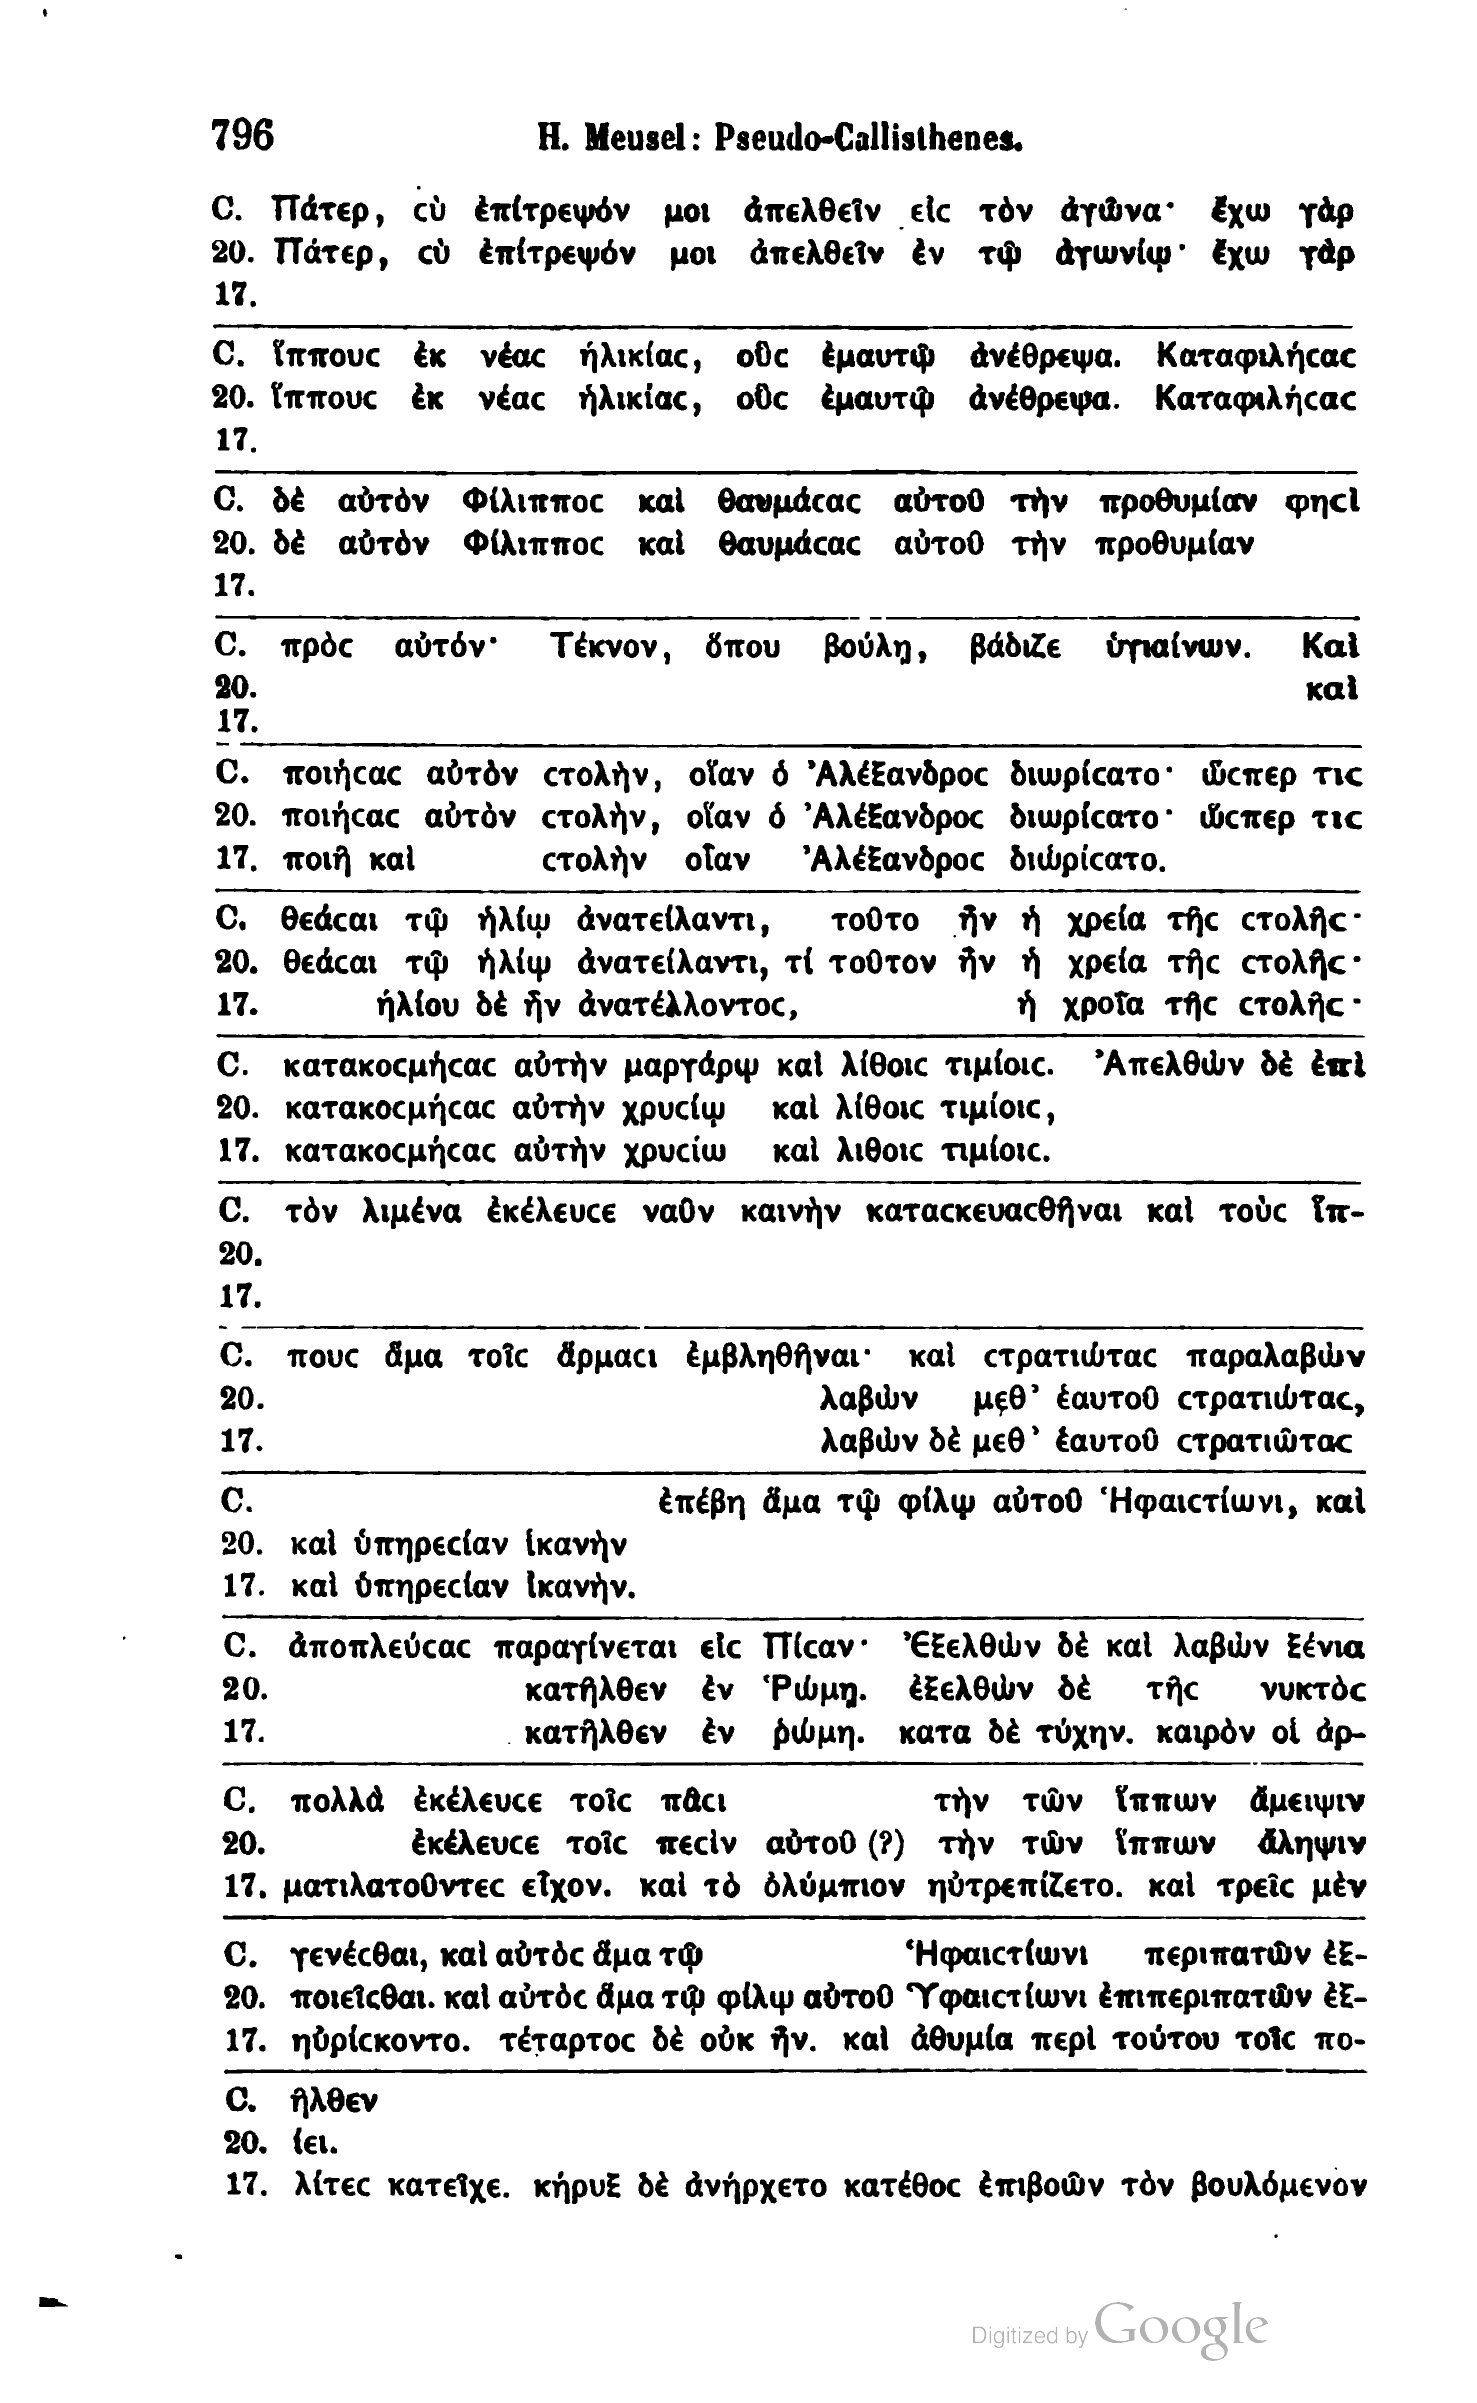 796 H. Meusel: Pseudo-Callisthenes.
C. Πάτερ, cὺ ἐπίτρεψόν μοι ἀπελθεῖν εἰc τὸν ἀγῶνα· ἔχω γὰρ
20. Πάτερ, cὺ ἐπίτρεψόν μοι ἀπελθεῖν ἐν τῷ ἀγωνίῳ· ἔχω γὰρ
17.
C. ἵππουc ἐκ νέαc ἡλικίαc, οὓc ἐμαυτῷ ἀνέθρεψα. Καταφιλήcαc
20. ἵππουc ἐκ νέαc ἡλικίαc, οὓc ἐμαυτῷ ἀνέθρεψα. Καταφιλήcαc
17.
C. δὲ αὐτὸν Φίλιπποc καὶ θαυμάcαc αὐτοῦ τὴν προθυμίαν φηcὶ
20. δὲ αὐτὸν Φίλιπποc καὶ θαυμάcαc αὐτοῦ τὴν προθυμίαν
17.
C. πρὸc αὐτόν· Τέκνον, ὅπου βούλῃ, βάδιζε ὑγιαίνων. Καὶ
20. καὶ
17.
C. ποιήcαc αὐτὸν cτολὴν, οἵαν ὁ Ἀλέξανδροc διωρίcατο· ὥcπερ τιc
20. ποιήcαc αὐτὸν cτολὴν, οἵαν ὁ Ἀλέξανδροc διωρίcατο· ὥcπερ τιc
17. ποιῆ καὶ cτολὴν οἷαν Ἀλέξανδροc διώρίcατο.
C. θεάcαι τῷ ἡλίῳ ἀνατείλαντι, τοῦτο ἦν ἡ χρεία τῆc cτολῆc·
20. θεάcαι τῷ ἡλίῳ ἀνατείλαντι, τί τοῦτον ἦν ἡ χρεία τῆc cτολῆc·
17. ἡλίου δὲ ἦν ἀνατέλλοντοc, ἡ χροῖα τῆc cτολῆc·
C. κατακοcμήcαc αὐτὴν μαργάρῳ καὶ λίθοιc τιμίοιc. Ἀπελθὼν δὲ ἐπὶ
20. κατακοcμήcαc αὐτὴν χρυcίῳ καὶ λίθοιc τιμίοιc,
17. κατακοcμήcαc αὐτὴν χρυcίω καὶ λιθοιc τιμίοιc.
C. τὸν λιμένα ἐκέλευcε ναῦν καινὴν καταcκευαcθῆναι καὶ τοὺc ἵπ-
20.
17.
C. πουc ἅμα τοῖc ἅρμαcι ἐμβληθῆναι· καὶ cτρατιώταc παραλαβὼν
20. λαβὼν μεθ’ ἑαυτοῦ cτρατιώταc,
17. λαβὼν δὲ μεθ’ ἑαυτοῦ cτρατιῶταc
C. ἐπέβη ἅμα τῷ φίλῳ αὐτοῦ Ἡφαιcτίωνι, καὶ
20. καὶ ὑπηρεcίαν ἱκανὴν
17. καὶ ὑπηρεcίαν ἱκανὴν.
C. ἀποπλεύcαc παραγίνεται εἰc Πίcαν· Ἐξελθὼν δὲ καὶ λαβὼν ξένια
20. κατῆλθεν ἐν Ῥώμῃ. ἐξελθὼν δὲ τῆc νυκτὸc
17. κατῆλθεν ἐν ῥώμη. κατα δὲ τύχην. καιρὸν οἱ ἁρ-
C. πολλὰ ἐκέλευcε τοῖc πᾶcι τὴν τῶν ἵππων ἄμειψιν
20. ἐκέλευcε τοῖc πεcὶν αὐτοῦ (?) τὴν τῶν ἵππων ἄληψιν
17. ματιλατοῦντεc εἶχον. καὶ τὸ ὀλύμπιον ηὐτρεπίζετο. καὶ τρεῖc μὲν
C. γενέcθαι, καὶ αὐτὸc ἅμα τῷ Ἡφαιcτίωνι περιπατῶν ἐξ-
20. ποιεῖcθαι. καὶ αὐτὸc ἅμα τῷ φίλῳ αὐτοῦ Ὑφαιcτίωνι ἐπιπεριπατῶν ἐξ-
17. ηὑρίcκοντο. τέταρτοc δὲ οὐκ ἦν. καὶ ἀθυμία περὶ τούτου τοῖc πο-
C. ῆλθεν
20. ίει.
17. λίτεc κατεῖχε. κήρυξ δὲ ἀνήρχετο κατέθοc ἐπιβοῶν τὸν βουλόμενον
Digitized by Google